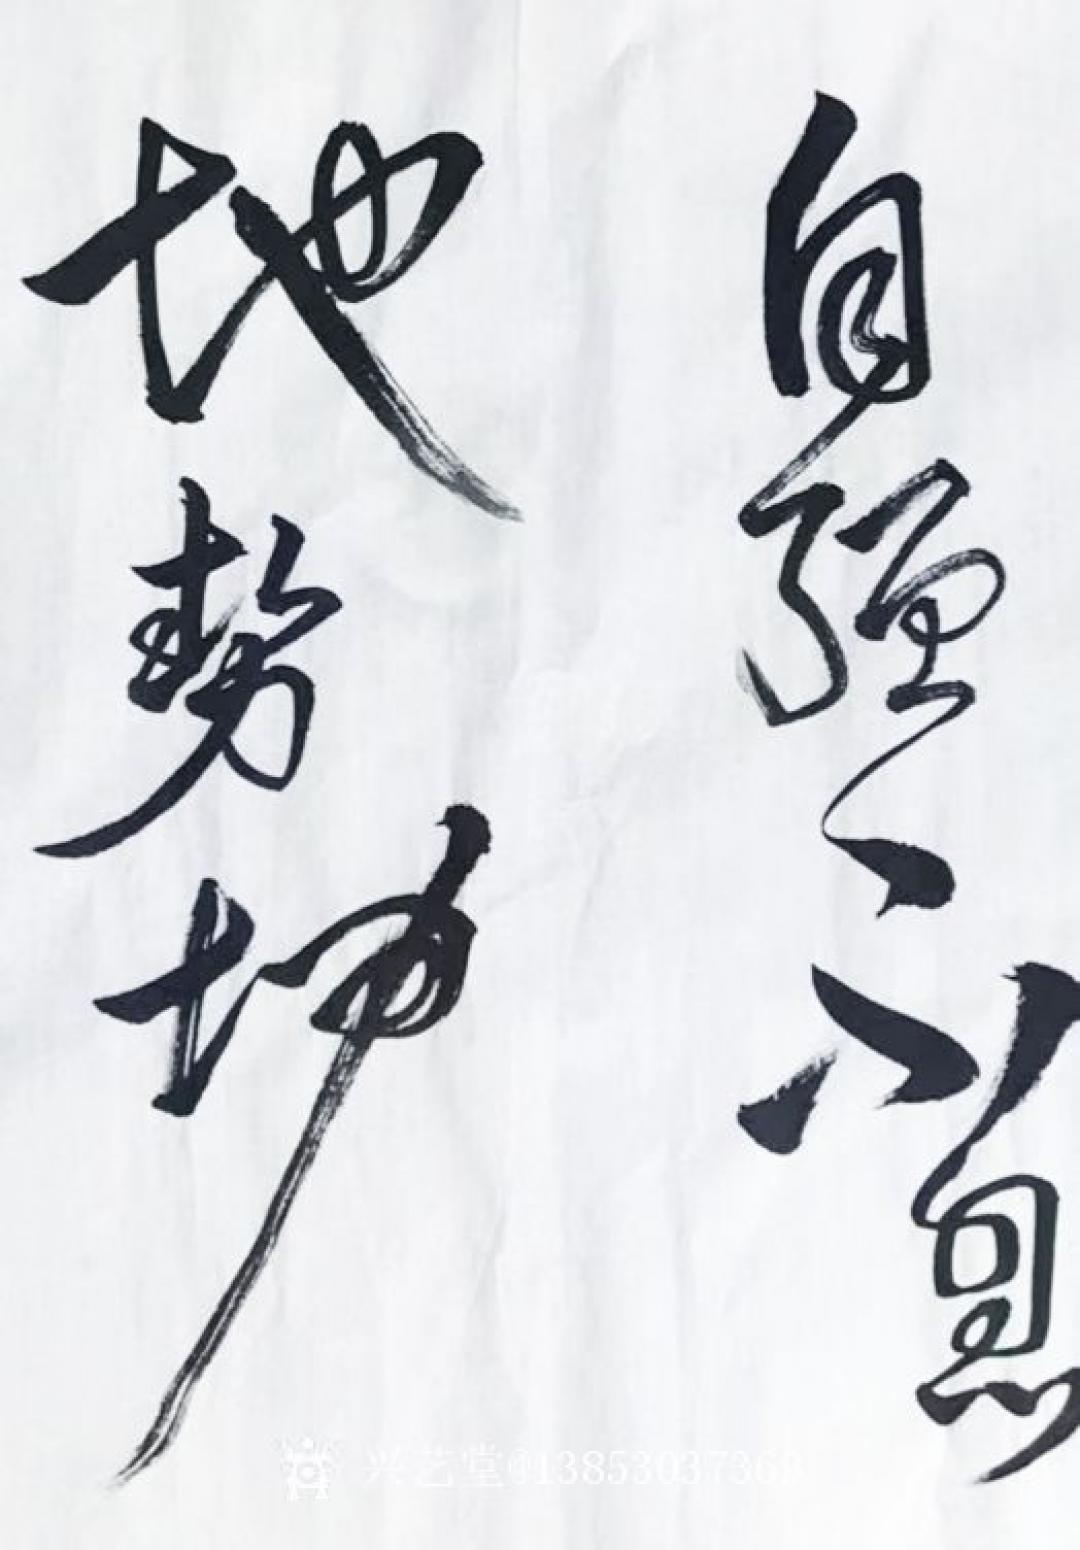 自强不息
地势坤
兴艺堂@13853037369